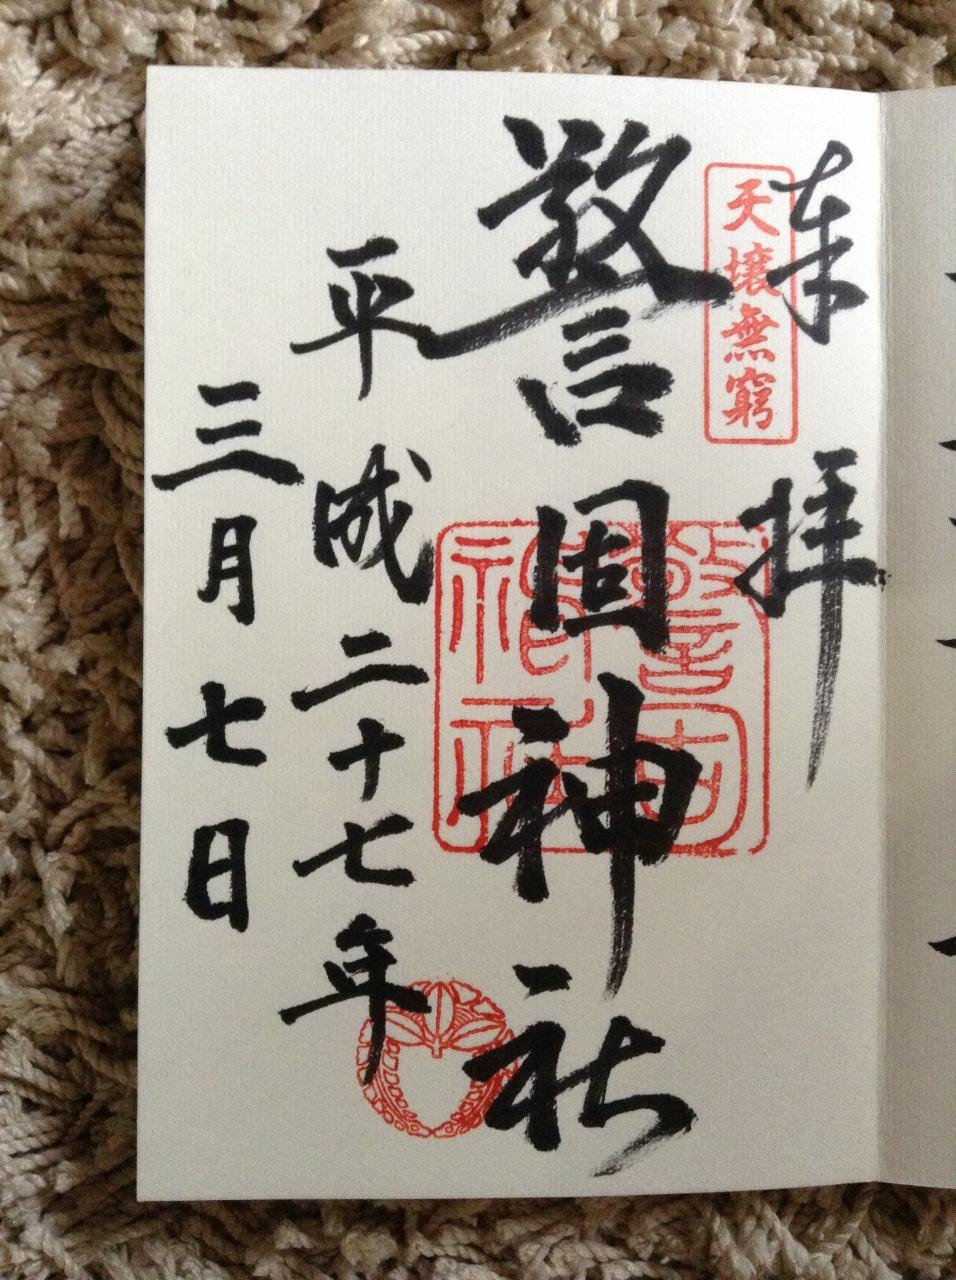 奉拝
天壌無窮
警固神社
警固神社
平成二十七年
三月七日